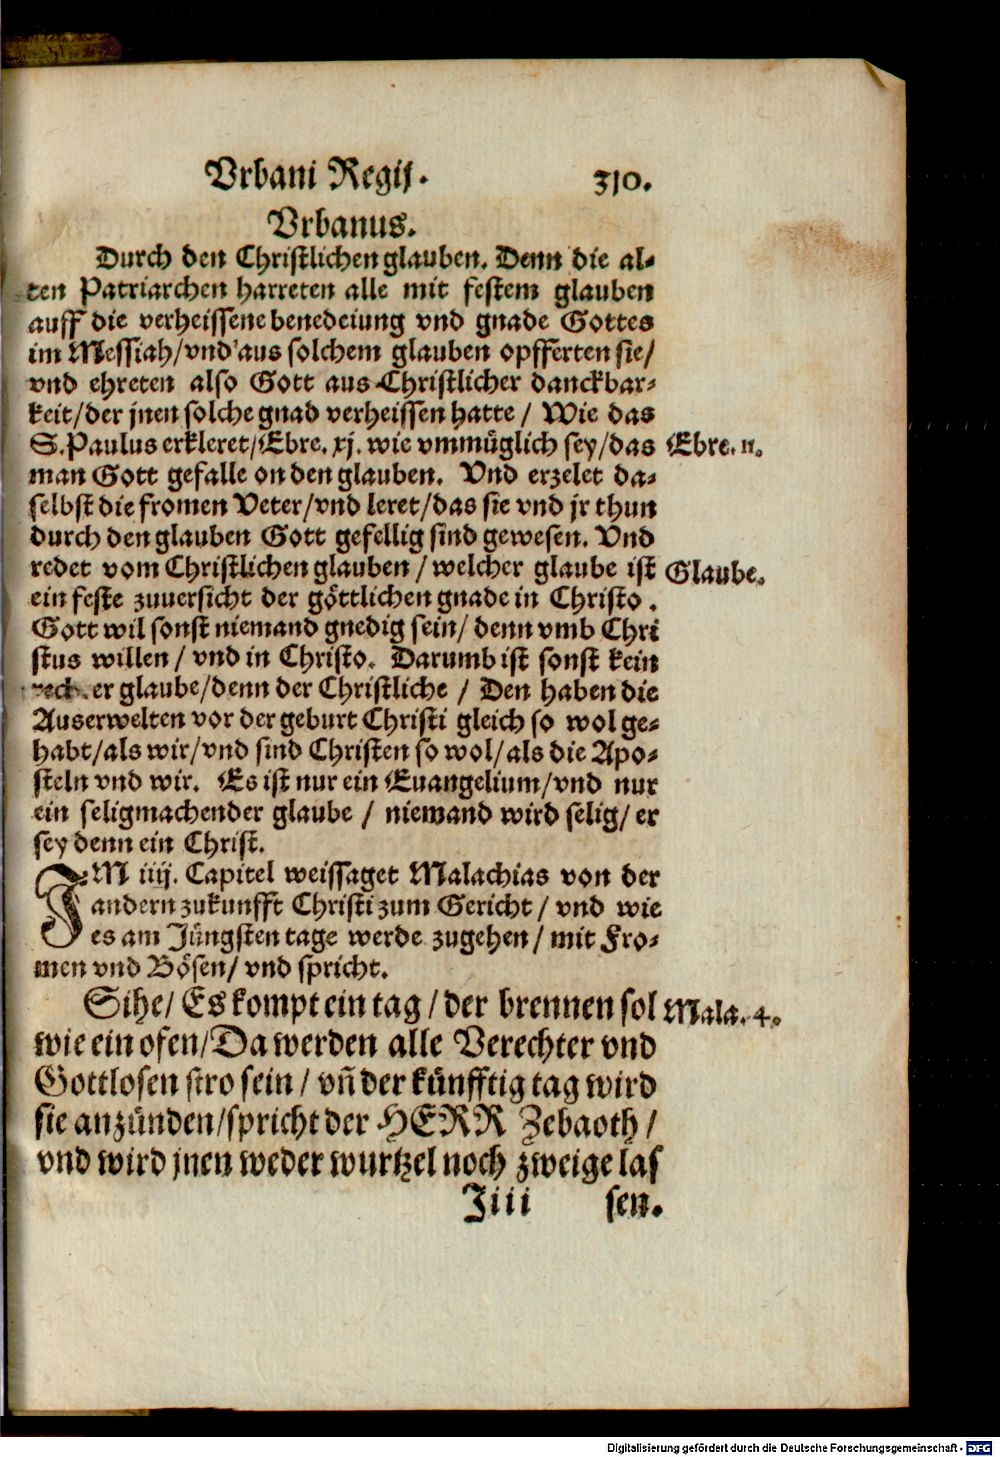 Vrbani Regij. 310.
Vrbanus.
Durch den Christlichen glauben. Denn die al-
ten Patriarchen harreten alle mit festem glauben
auff die verheissene benedeiung vnd gnade Gottes
im Messiah/vnd aus solchem glauben opfferten sie/
vnd ehreten also Gott aus Christlicher danckbar-
keit/der jnen solche gnad verheissen hatte / Wie das
S. Paulus erkleret/Ebre. xj. wie vmmüglich sey/das
Ebre. 11.
man Gott gefalle on den glauben. Vnd erzelet da-
selbst die fromen Veter/vnd leret/das sie vnd jr thun
durch den glauben Gott gefellig sind gewesen. Vnd
redet vom Christlichen glauben / welcher glaube ist
Glaube.
ein feste zuuersicht der göttlichen gnade in Christo.
Gott wil sonst niemand gnedig sein/ denn vmb Chri
stus willen / vnd in Christo. Darumb ist sonst kein
er glaube/denn der Christliche / Den haben die
Auserwelten vor der geburt Christi gleich so wol ge-
habt/als wir/vnd sind Christen so wol/als die Apo-
steln vnd wir. Es ist nur ein Euangelium/vnd nur
ein seligmachender glaube / niemand wird selig/ er
sey denn ein Christ.
IM iiij. Capitel weissaget Malachias von der
andern zukunfft Christi zum Gericht / vnd wie
es am Jüngsten tage werde zugehen / mit Fro-
men vnd Bösen/ vnd spricht.
Sihe/ Es kompt ein tag / der brennen sol
Mala. 4.
wie ein ofen/Da werden alle Verechter vnd
Gottlosen stro sein / vñ der künfftig tag wird
sie anzünden/spricht der HERR Zebaoth /
vnd wird jnen weder wurtzel noch zweige las
Jiii sen.
Digitalisierung gefördert durch die Deutsche Forschungsgemeinschaft - DFG